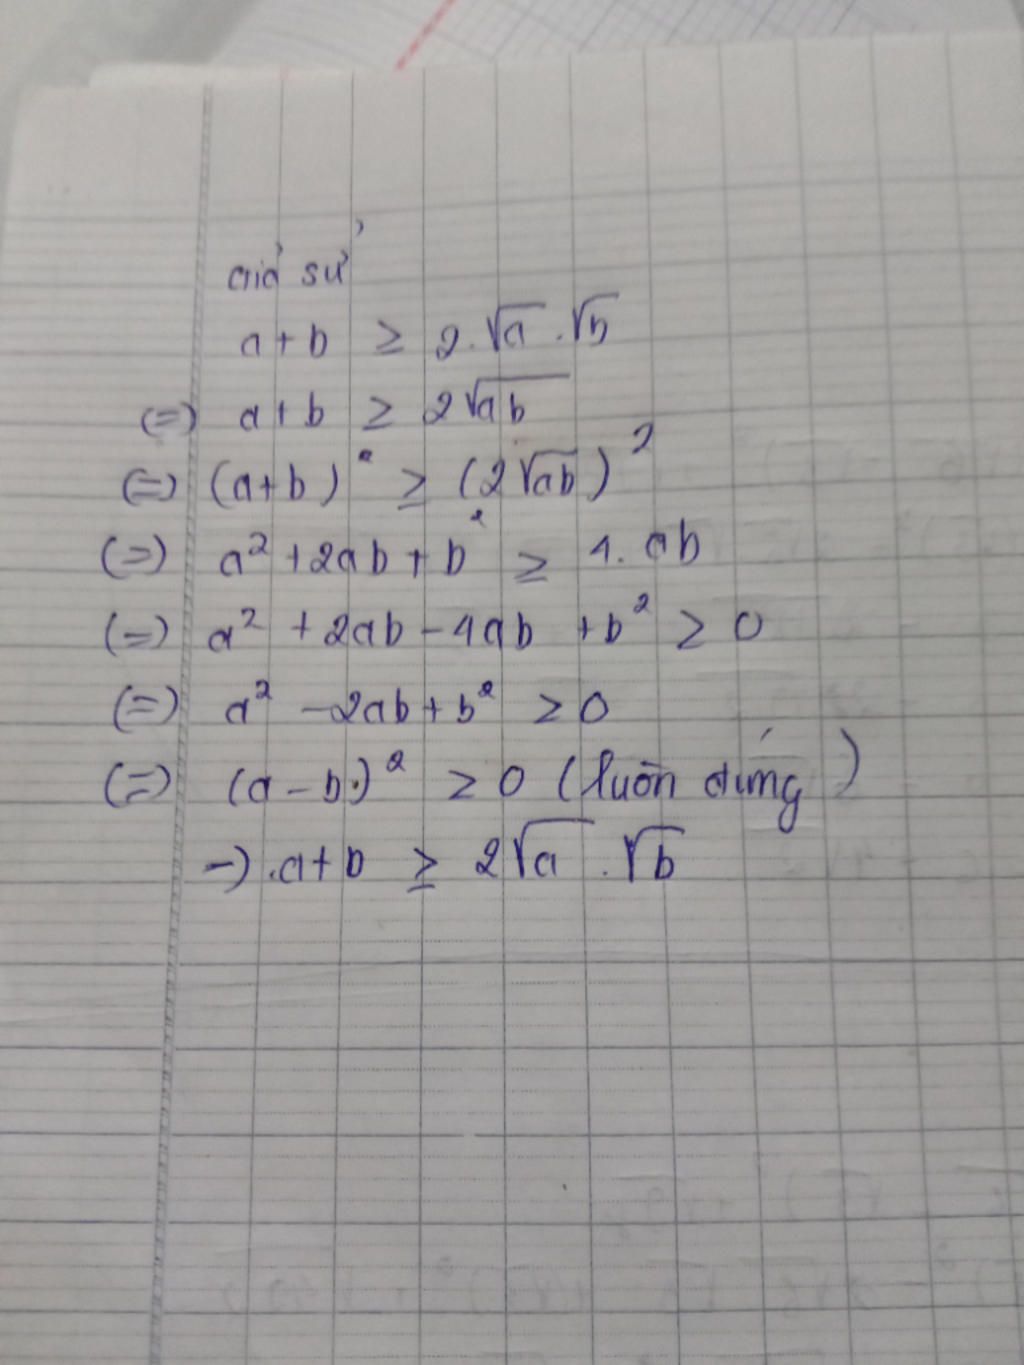 giả sử
a + b ≥ 2.√a .√b
(=) a + b ≥ 2√ab
(=) (a+b)² ≥ (2√ab)²
(=) a² + 2ab + b² ≥ 4. ab
(=) a² + 2ab - 4ab + b² ≥ 0
(=) a² - 2ab + b² ≥ 0
(=) (a - b)² ≥ 0 (luôn đúng)
-) .a+b ≥ 2√a . √b